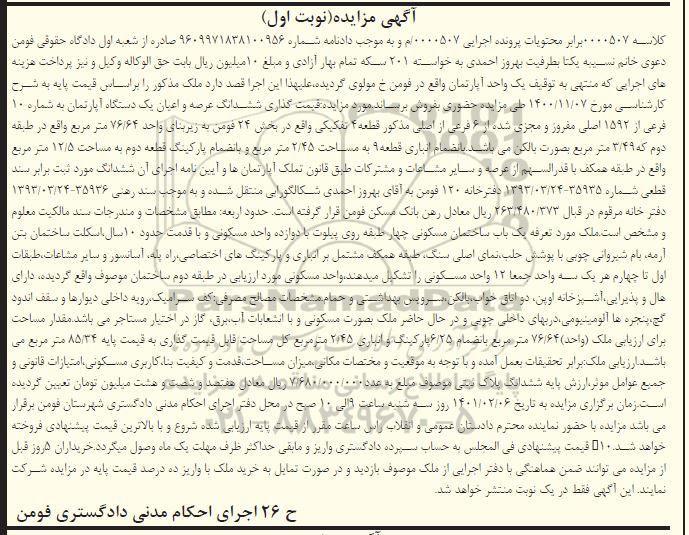 آگهی مزایده(نوبت اول)
کلاسه ۰۰۰۰۵۰۷برابر محتویات پرونده اجرایی ۰۰۰۰۵۰۷/م و به موجب دادنامه شماره ۹۶۰۹۹۷۱۸۳۸۱۰۰۹۵۶ صادره از شعبه اول دادگاه حقوقی فومن
دعوی خانم نسیبه یکتا بطرفیت بهروز احمدی به خواسته ۲۰۱ سکه تمام بهار آزادی و مبلغ ۱۰میلیون ریال بابت حق الوکاله وکیل و نیز پرداخت هزینه
های اجرایی که منتهی به توقیف یک واحد آپارتمان واقع در فومن خ مولوی گردیده،علیهذا این اجرا قصد دارد ملک مذکور را براساس قیمت پایه به شرح
کارشناسی مورخ ۱۴۰۰/۱۱/۰۷ طی مزایده حضوری بفروش برساند.مورد مزایده:قیمت گذاری ششدانگ عرصه و اعیان یک دستگاه آپارتمان به شماره ۱۰
فرعی از ۱۵۹۲ اصلی مفروز و مجزی شده از ۶ فرعی از اصلی مذکور قطعه۴ تفکیکی واقع در بخش ۲۴ فومن به زیربنای واحد ۷۶/۶۴ متر مربع واقع در طبقه
دوم که۳/۴۹ متر مربع بصورت بالکن می باشد.بانضمام انباری قطعه۹ به مساحت ۲/۴۵ متر مربع و بانضمام پارکینگ قطعه دوم به مساحت ۱۲/۵ متر مربع
واقع در طبقه همکف با قدرالسهم از عرصه و سایر مشاعات و مشترکات طبق قانون تملک آپارتمان ها و آیین نامه اجرای آن ششدانگ مورد ثبت برابر سند
قطعی شماره ۳۵۹۳۵-۱۳۹۳/۰۳/۲۴ دفترخانه ۱۲۰ فومن به آقای بهروز احمدی شکالگورابی منتقل شده و به موجب سند رهنی ۳۵۹۳۶-۱۳۹۳/۰۳/۲۴
دفتر خانه مرقوم در قبال ۲۶۳/۴۸۰/۳۷۳ ریال معادل رهن بانک مسکن فومن قرار گرفته است. حدود اربعه: مطابق مشخصات و مندرجات سند مالکیت معلوم
و مشخص است.ملک مورد تعرفه یک باب ساختمان مسکونی چهار طبقه روی پیلوت با دوازده واحد مسکونی و با قدمت حدود ۱۰سال،اسکلت ساختمان بتن
آرمه، بام شیروانی چوبی با پوشش حلب،نمای اصلی سنگ، طبقه همکف مشتمل بر انباری و پارکینگ های اختصاصی،راه پله، آسانسور و سایر مشاعات،طبقات
اول تا چهارم هر یک سه واحد جمعا ۱۲ واحد مسکونی را تشکیل میدهند،واحد مسکونی مورد ارزیابی در طبقه دوم ساختمان موصوف واقع گردیده، دارای
هال و پذیرایی،آشپزخانه اوپن، دو اتاق خواب،بالکن،سرویس بهداشتی و حمام مشخصات مصالح مصرفی:کف سرامیک،رویه داخلی دیوارها و سقف اندود
گچ،پنجره ها آلومینیومی،دربهای داخلی چوبی و در حال حاضر ملک بصورت مسکونی و با انشعابات آب،برق، گاز در اختیار مستاجر می باشد.مقدار مساحت
برای ارزیابی ملک (واحد)۷۶/۶۴ متر مربع بانضمام ۶/۲۵پارکینگ و انباری ۲/۴۵ مترمربع کل مساحت قابل قیمت گذاری به قیمت پایه ۸۵/۳۴ متر مربع می
باشد.ارزیابی ملک:برابر تحقیقات بعمل آمده و با توجه به موقعیت و مختصات مکانی،میزان مساحت،قدمت و کیفیت بنا،کاربری مسکونی،امتیازات قانونی و
جمیع عوامل موثر،ارزش پایه ششدانگ پلاک ثبتی موصوف مبلغ به عدد۷/۶۸۰/۰۰۰/۰۰۰ ریال معادل هفتصد و شصت و هشت میلیون تومان تعیین گردیده
است.زمان برگزاری مزایده به تاریخ ۱۴۰۱/۰۲/۰۶ روز سه شنبه ساعت ۹الی ۱۰ صبح در محل دفتر اجرای احکام مدنی دادگستری شهرستان فومن برقرار
می باشد مزایده با حضور نماینده محترم دادستان عمومی و انقلاب راس ساعت مقرر از قیمت پایه ارزیابی شده شروع و با بالاترین قیمت پیشنهادی فروخته
خواهد شد.۱۰٪ قیمت پیشنهادی فی المجلس به حساب سپرده دادگستری واریز و مابقی حداکثر ظرف مهلت یک ماه وصول میگردد.خریداران ۵روز قبل
از مزایده می توانند ضمن هماهنگی با دفتر اجرایی از ملک موصوف بازدید و در صورت تمایل به خرید ملک با واریز ده درصد قیمت پایه در مزایده شرکت
نمایند. این آگهی فقط در یک نوبت منتشر خواهد شد.
ح ۲۶ اجرای احکام مدنی دادگستری فومن
ParsNamadData
۰۲۱-۸۸۳۴۹۶۷۰-۵